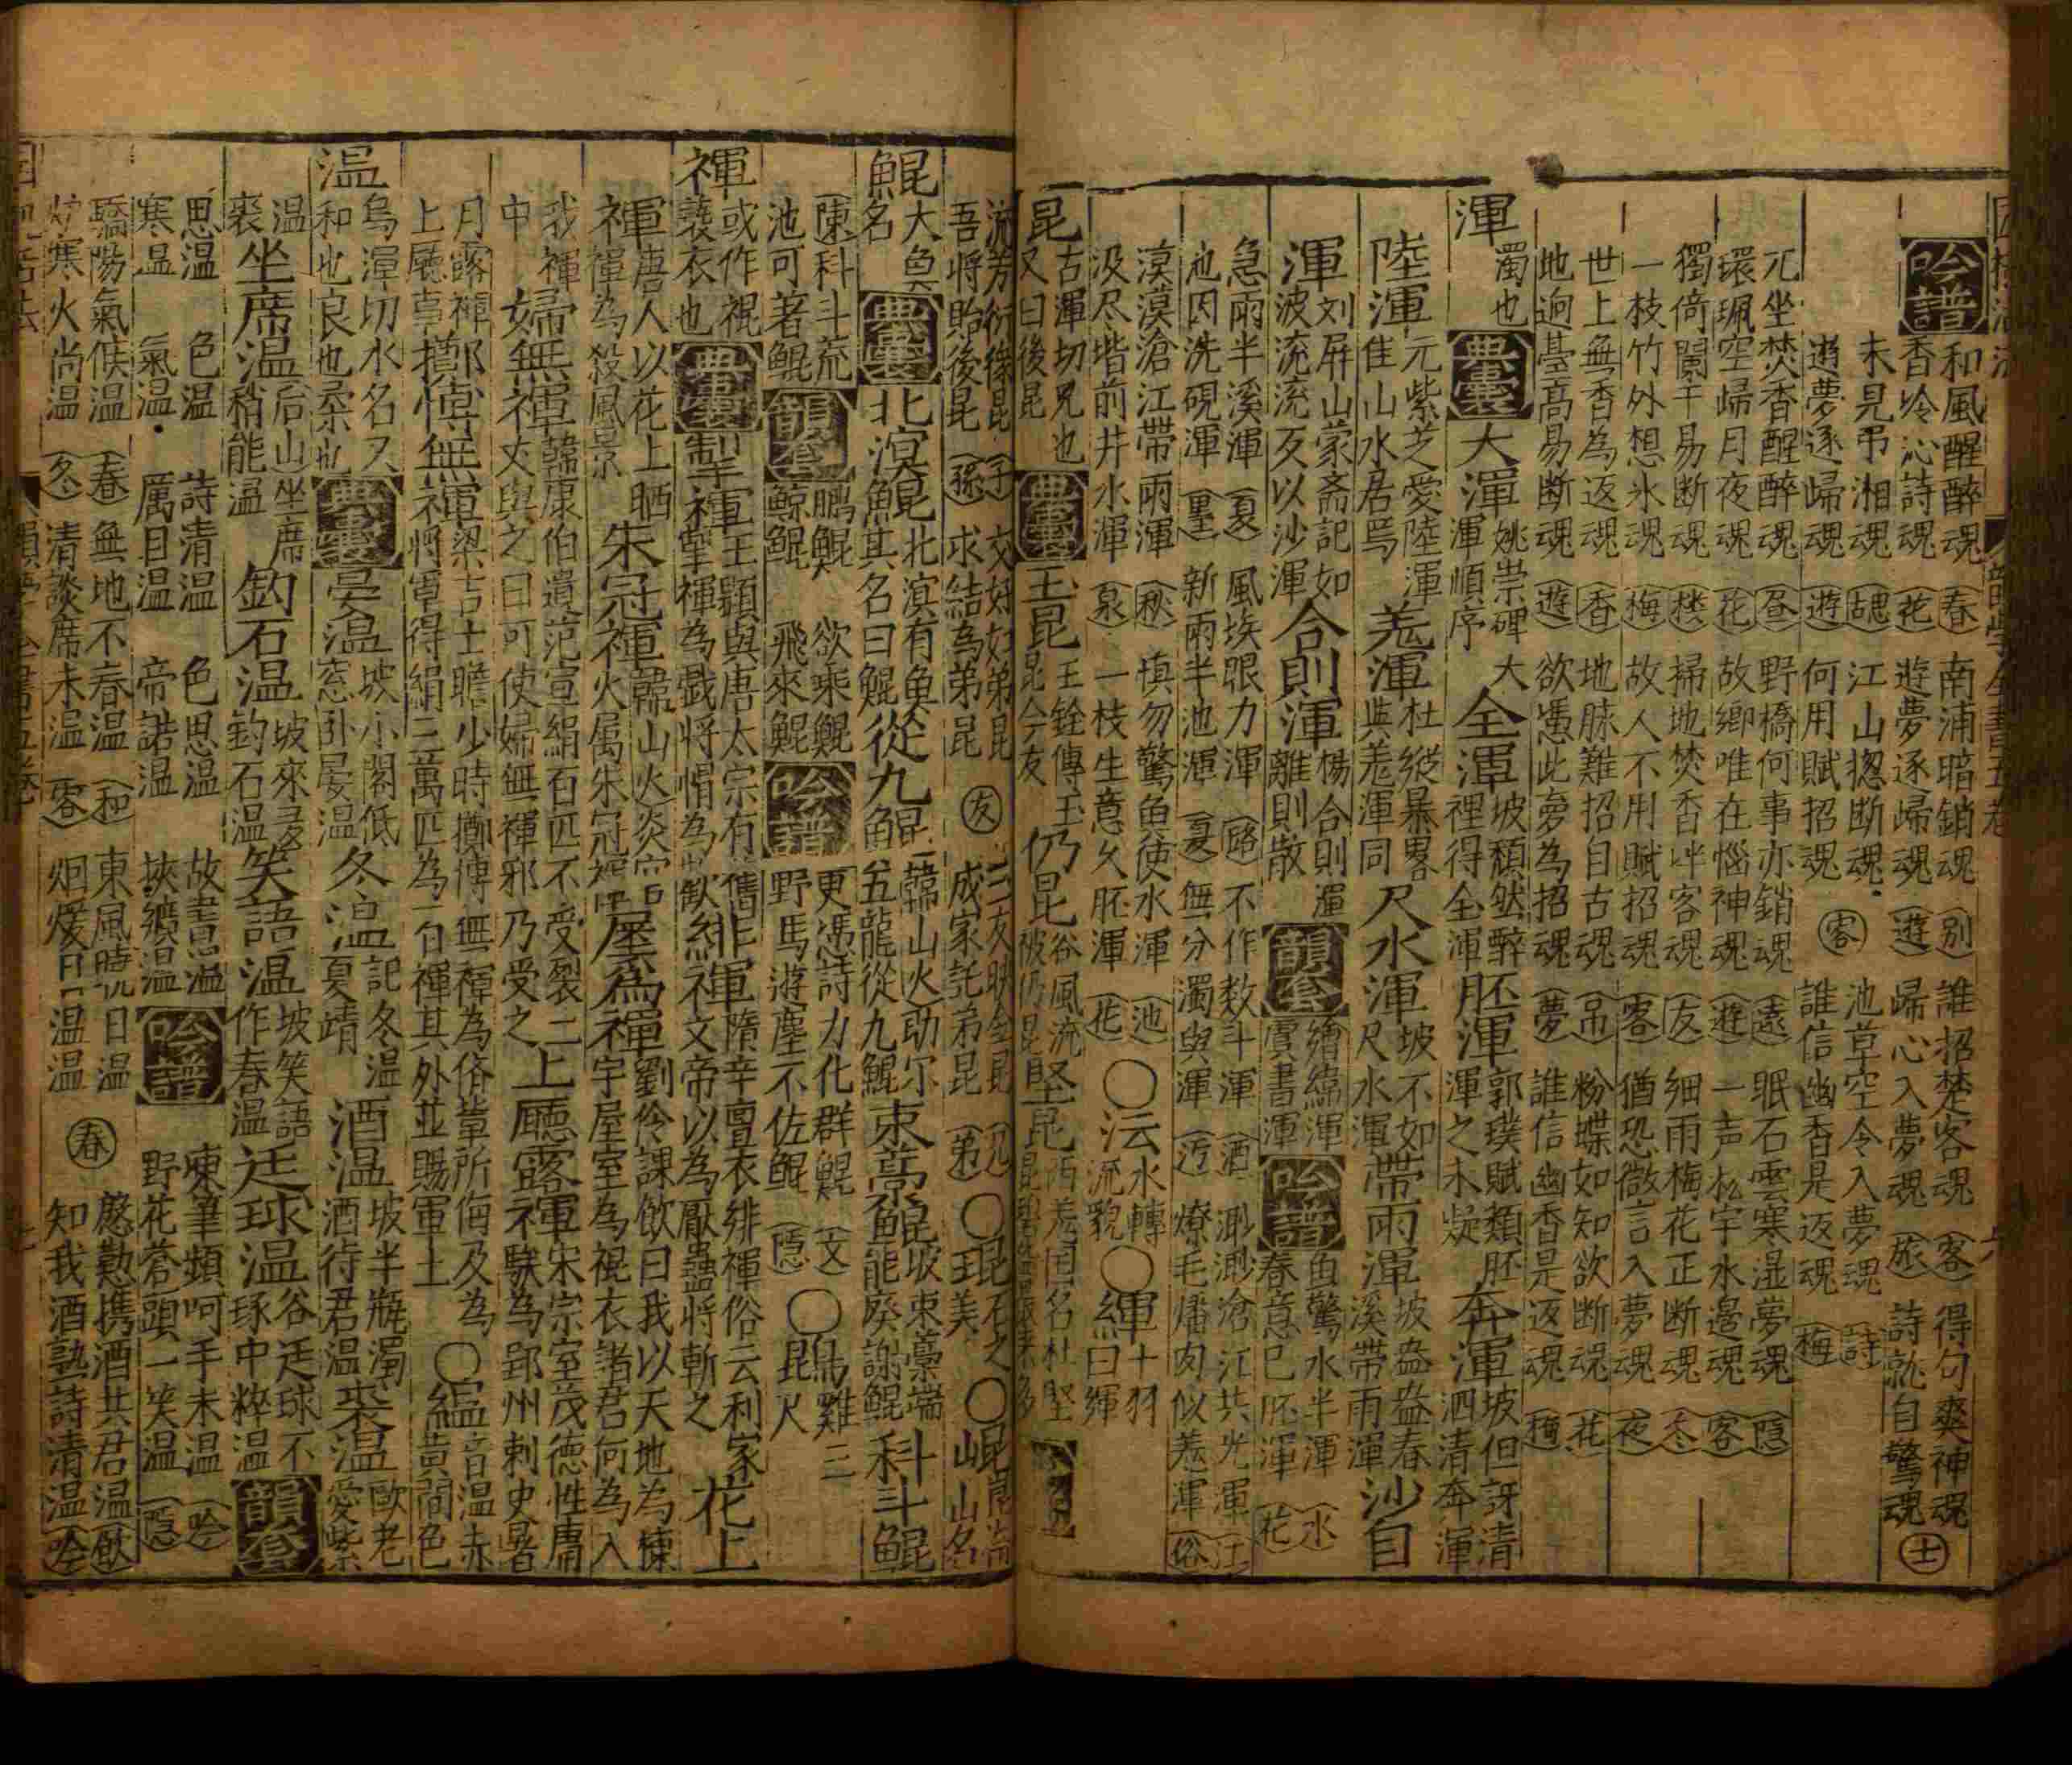 吟譜
和風醒醉魂 春 南浦暗銷魂 別 誰招楚客魂 客 得句爽神魂
香冷沁詩魂 花 遊夢逐歸魂 遊 歸心入夢魂 旅 詩就自驚魂 士
未見弔湘魂 江山揔断魂 池草空令入夢魂 詩
遊夢逐歸魂 遊 何用賦招魂 客 誰信幽香是返魂 梅
兀坐焚香醒醉魂 昼 野橋何事亦銷魂 遠 眠石雲寒湿夢魂 隐
環珮空歸月夜魂 花 故鄉唯在惱神魂 遊 一声松宇水邉魂 客
獨倚闌干易断魂 掃地焚香伴客魂 友 細雨梅花正断魂 冬
一枝竹外想氷魂 梅 故人不用賦招魂 客 猶恐微言入夢魂 夜
世上無香為返魂 香 地脉難招自古魂 吊 粉蝶如知欲断魂 花
地逈臺高易断魂 遊 欲憑此夢為招魂 夢 誰信幽香是返魂 梅
渾 濁也 典囊 大渾 姚崇碑大渾順序 全渾 坡頹然醉裡得全渾 胚渾 郭璞賦類胚渾之未凝 奔渾 坡但訝清泗清奔渾
陸渾 元紫芝愛陸渾佳山水居焉 羗渾 杜縱暴畧與羗渾同 尺水渾 坡不如尺水渾 帶雨渾 坡盎盎春溪帶雨渾 沙自
渾 刘屏山蒙斋記如波流流歹以沙渾 合則渾 楊合則渾離則散 韻套 繪繡渾 虞書渾 吟譜 魚驚水半渾 水 春意已胚渾 花
急雨半溪渾 夏 風埃眼力渾 路 不作数斗渾 酒 渺渺滄江共光渾 江
池因洗硯渾 墨 新雨半池渾 夏 無分濁與渾 燎毛燔肉似羗渾 俗
漠漠滄江帶雨渾 秋 填勿驚魚使水渾 池 ○沄 水轉流貌 ○緷 十羽曰緷
汲尽堦前井水渾 泉 一枝生意久胚渾 花
昆 古渾切兄也又曰後昆 典囊 王昆 王銓傳玉昆今友 仍昆 谷風流被仍昆 堅昆 西羗国名杜堅昆
流芳衍後昆 子 交好如弟昆 友 三友映全昆 兄 ○琨 石之美 ○崐 崐崙山名
吾將貽後昆 孫 求結為弟昆 成家託弟昆 弟
鯤 大魚名 典囊 北溟鯤 北溟有魚其名曰鯤 從九鯤 韓山火助尔五龍從九鯤 束藁鯤 坡束藁端能廢謝鯤 科斗鯤
陳科斗荒池可著鯤 韻套 鵬鯤 鯨鯤 欲乘鯤 飛來鯤 吟譜 更憑詩力化群鯤 文 野馬遊塵不佐鯤 隱 ○鶤 雞三尺
褌 或作裩褻衣也 典囊 掣褌 王顥與唐太宗有舊掣褌為戲將帽為歡 緋褌 隋辛亶衣緋褌俗云利家文帝以為厭蠱將斬之 花上
褌 唐人以花上晒褌為殺風景 朱冠褌 韓山火炎官火属朱冠褌 屋為褌 劉伶課飲曰我以天地為棟宇屋室為裩衣諸君何為入
我褌中 婦無褌 韓康伯遺范宣絹百匹不受裂二丈與之曰可使婦無褌邪乃受之 上廳露褌 宋宗室茂德性庸騃為郢州刺史暑
月露褌上廳事 擲愽無褌 梁吉士瞻少時擲愽無褌為俗輩所侮及為將軍得絹三萬匹為百褌其外並賜軍士 ○縕 音温赤黃間色
温 烏渾切水名又和也良也柔也 典囊 晏温 坡小閣低窓卧晏温 冬温 記冬温夏凊 酒温 坡半瓶濁酒待君温 裘温 歐老愛紫
裘温 坐席温 后山坐席稍能温 鈞石温 坡來多鈞石温 笑語温 坡笑語作春温 廷球温 谷廷球不琢中粹温 韻套
思温 色温 詩清温 色思温 故書温 吟譜 凍筆頻呵手未温 吟
寒温 氣温 厲目温 帝諾温 挾纊温 野花蒼頭一笑温 隱
驕陽氣候温 春 無地不春温 和 東風晚日温 春 慇懃携酒共君温 飲
炉寒火尚温 冬 清談席未温 客 烟煖日温温 知我酒熟詩清温 吟